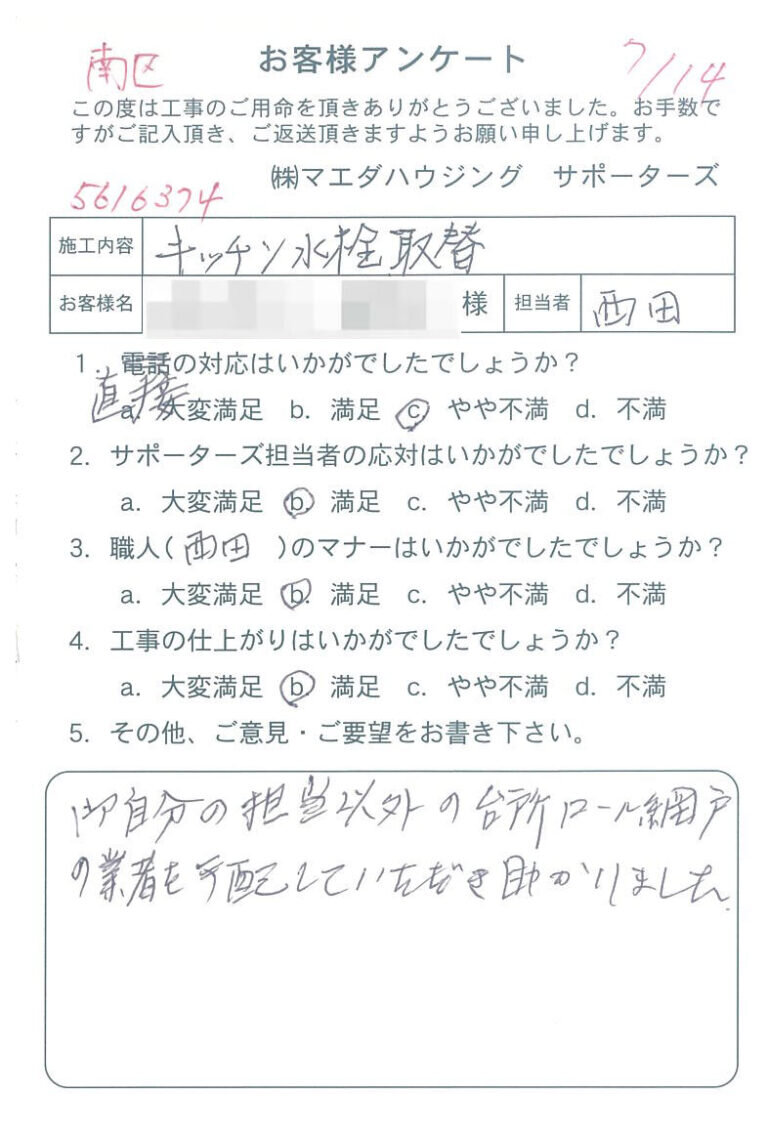 南区 お客様アンケート 7/14
この度は工事のご用命を頂きありがとうございました。お手数で
すがご記入頂き、ご返送頂きますようお願い申し上げます。
㈱マエダハウジング サポーターズ
5616374
施工内容 キッチン水栓取替
お客様名 様 担当者 西田
1. 電話の対応はいかがでしたでしょうか?
直接
a. 大変満足 b. 満足 c. やや不満 d. 不満
2. サポーターズ担当者の応対はいかがでしたでしょうか?
a. 大変満足 b. 満足 c. やや不満 d. 不満
3. 職人(西田)のマナーはいかがでしたでしょうか?
a. 大変満足 b. 満足 c. やや不満 d. 不満
4. 工事の仕上がりはいかがでしたでしょうか?
a. 大変満足 b. 満足 c. やや不満 d. 不満
5. その他、ご意見・ご要望をお書き下さい。
御自分の担当以外の台所ロール網戸
の業者を手配していただき助かりました.